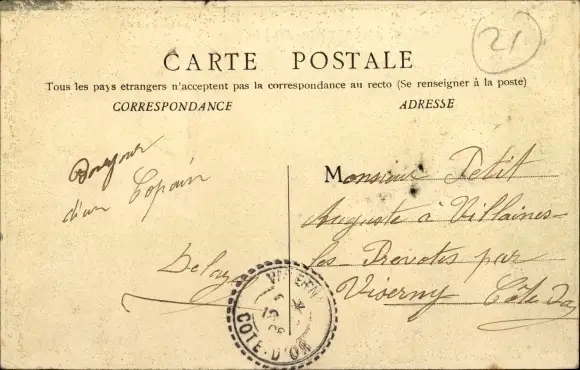 21
CARTE POSTALE
Tous les pays étrangers n'acceptent pas la correspondance au recto (Se renseigner à la poste)
CORRESPONDANCE
ADRESSE
Bonjour
d'un Copain
Delay
Monsieur Petit
Auguste à Villaines-
les Prevotes par
Viserny Côte d'or
VISERNY
COTE-D'OR